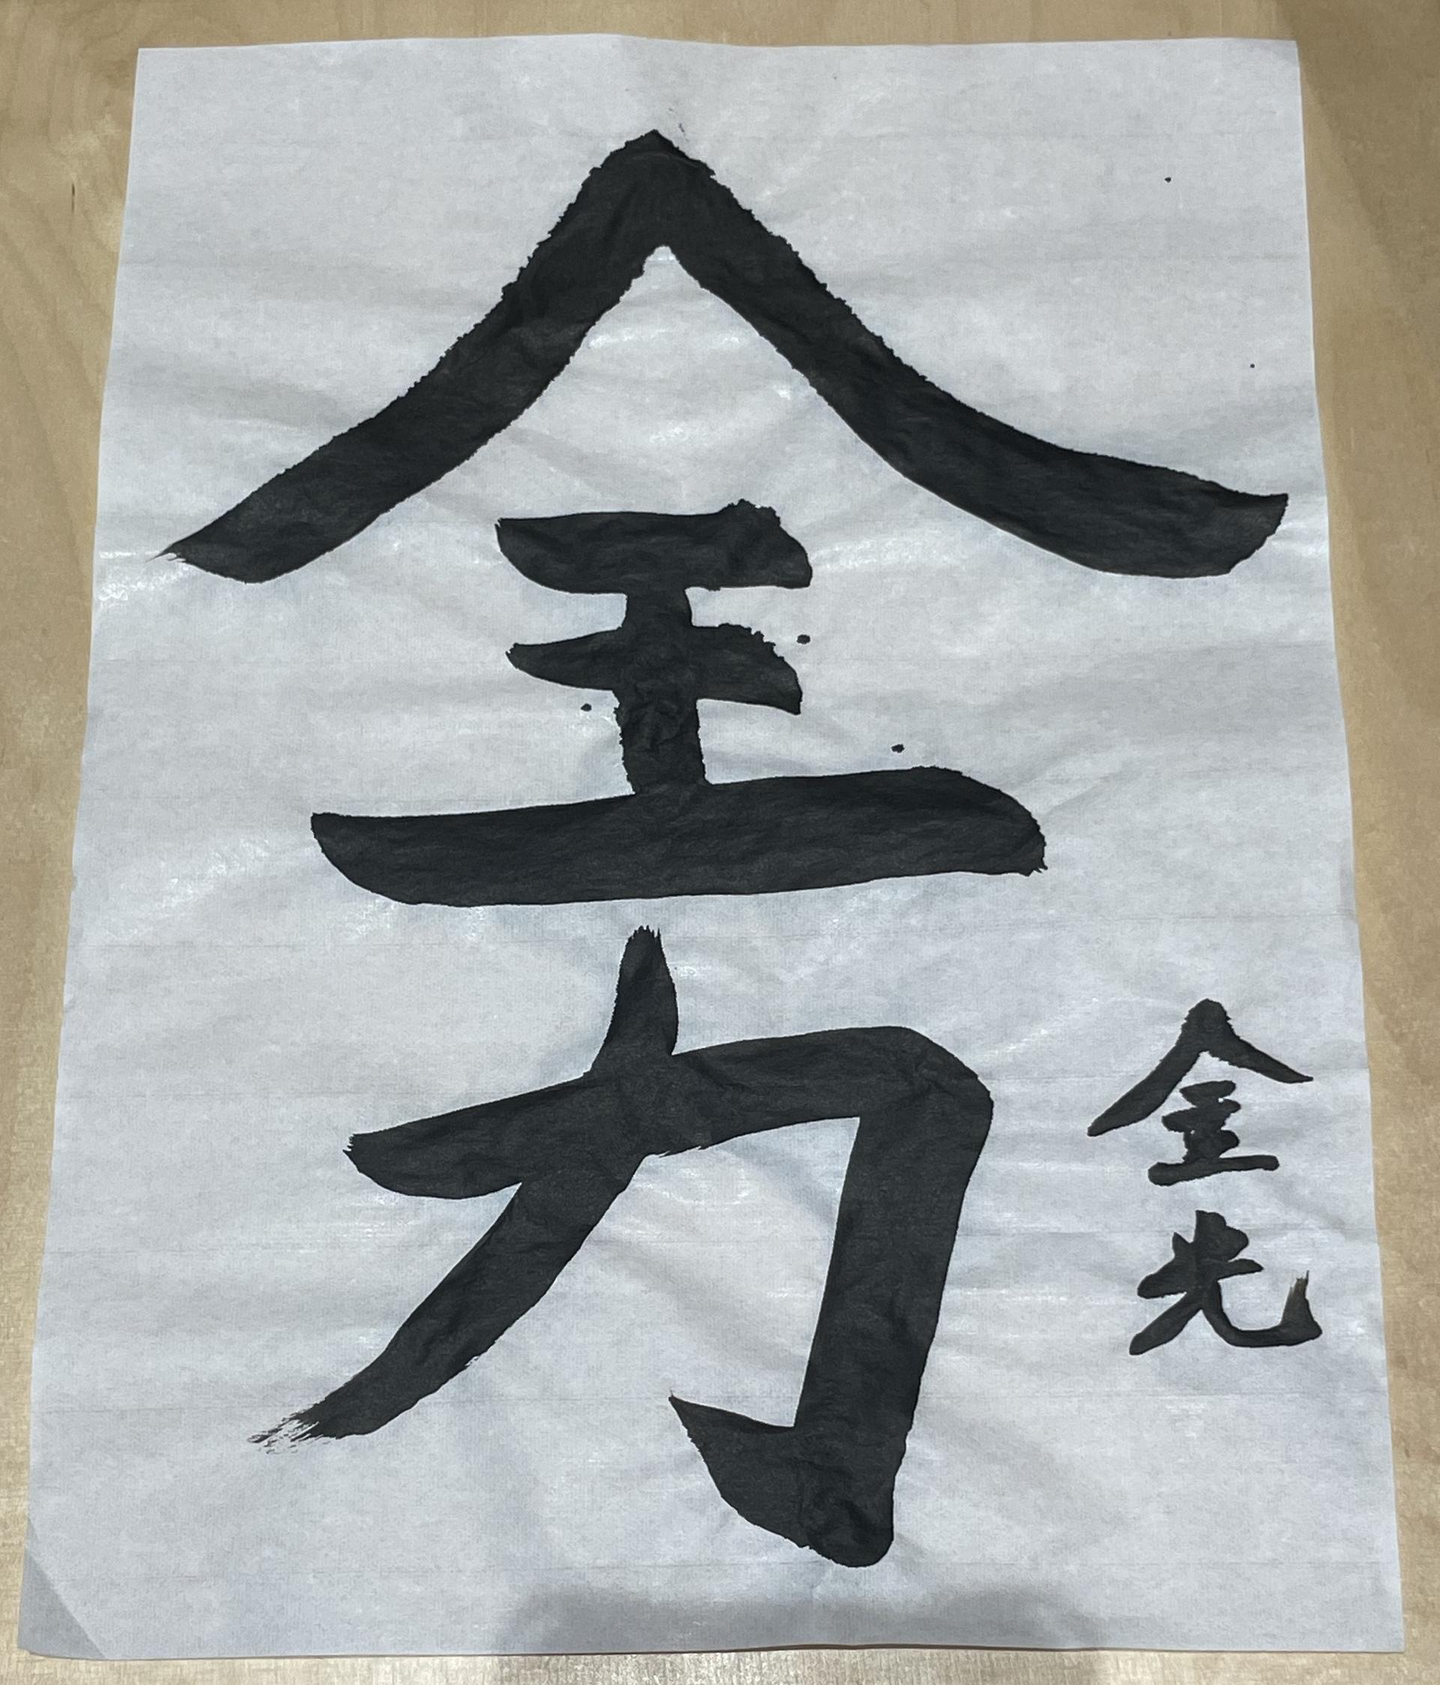 全力
金光